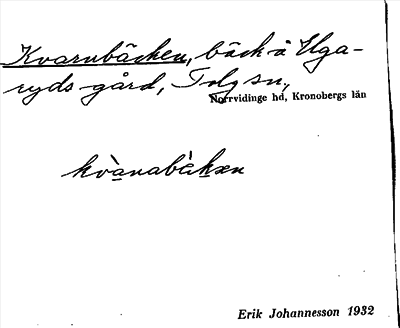 Kvarnbäcken, bäck å Ulga-
ryds gård, Tolg sn,
Norrvidinge hd, Kronobergs län
kvànabä̀kæn
Erik Johannesson 1932